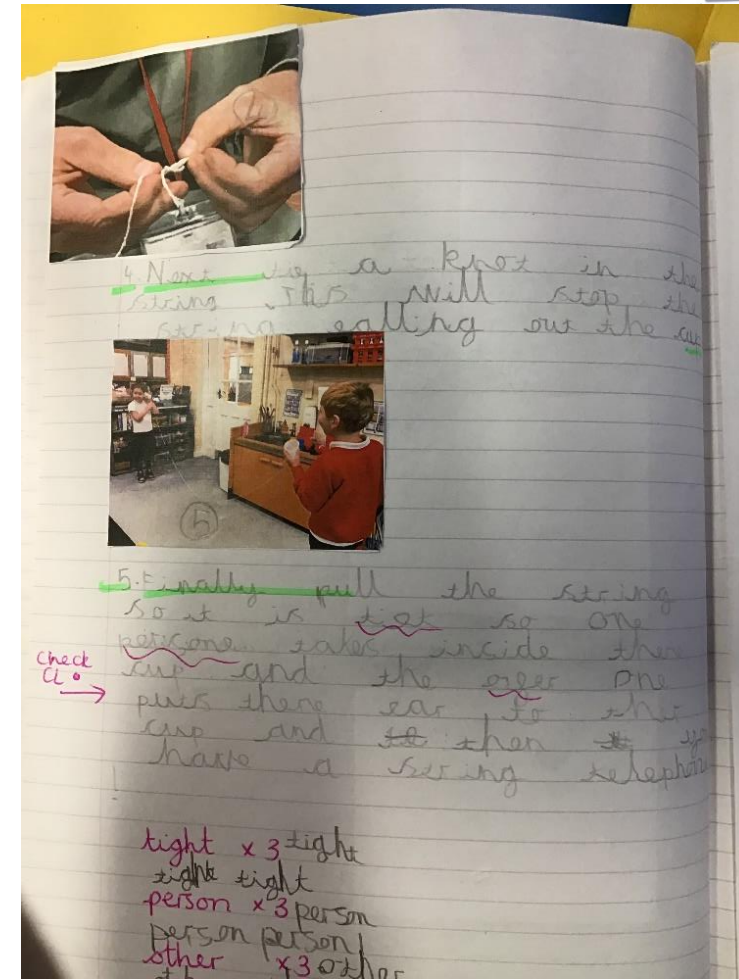 4. Next tie a knot in the
string. This will stop the
string falling out the cup
5
5. Finally pull the string
so it is tiet so one
persone takes inside there
Check
CL
cup and the over one
puts there ear to ther
cup and then yo
have a string telephone
!
tight x 3 tight
tight tight
person x 3 person
person person
other x 3 other